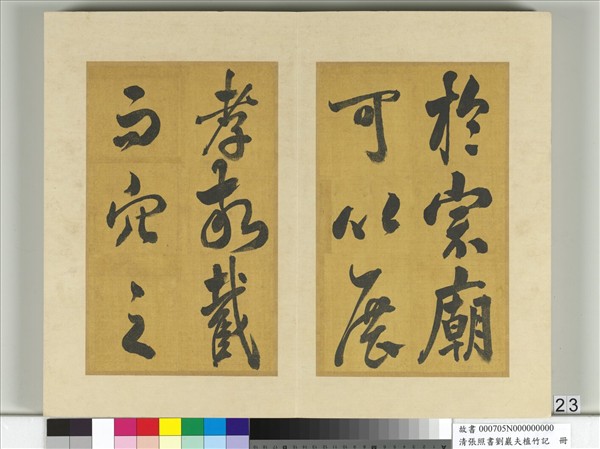 於宗廟
可以展
孝敬截
而穴之
23
故書 000705N000000000
清張照書劉巖夫植竹記 冊